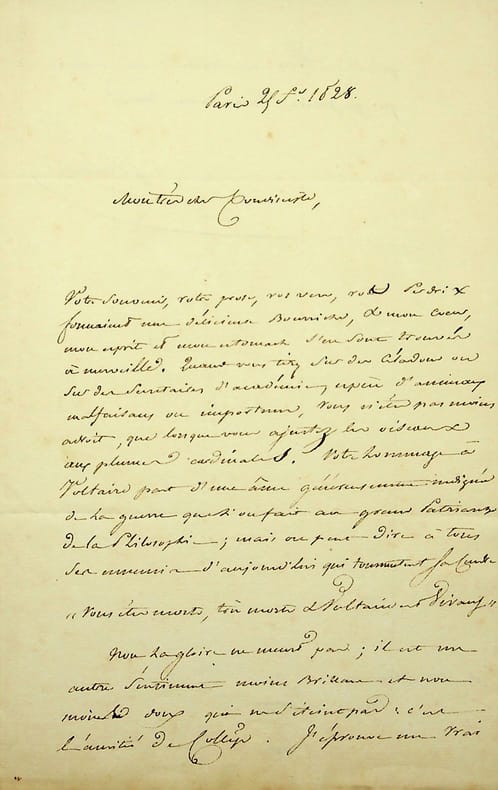 Paris 25 1828.
Mon très cher
Votre souvenir, votre prose, vos vers, vos Perdrix
formaient une délicieuse Bourriche, & mon cœur,
mon esprit et mon estomach s'en sont trouvés
à merveille. Quand vous tirez sur des Céladons ou
sur des Secrétaires d'académie, espèce d'animaux
malfaisans ou imposteurs, vous n'êtes pas moins
adroit, que lorsque vous ajustez les oiseaux
aux plumes cardinales. Votre hommage à
Voltaire part d'une âme généreusement indignée
de la guerre que l'on fait au grand Patriarche
de la Philosophie; mais on peut dire à tous
ses ennemis d'aujourd'hui qui tourmentent sa Cendre
"Vous êtes morts, très morts & Voltaire est Vivant"
Non la gloire ne meurt pas; il est un
autre sentiment moins Brillant et non
moins doux qui ne s'éteint pas: c'est
l'amitié de Collège. J'éprouve un vrai